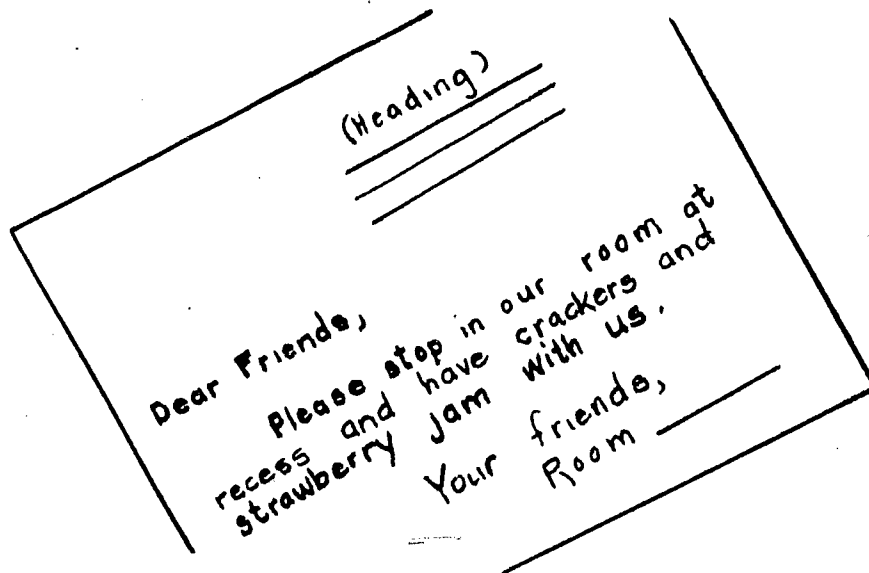 (Heading)
Dear Friends,
Please stop in our room at
recess and have crackers and
strawberry jam with us.
Your friends,
Room